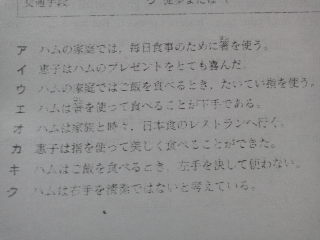 交通手段
ア ハムの家庭では、毎日食事のために箸を使う。
イ 恵子はハムのプレゼントをとても喜んだ。
ウ ハムの家庭ではご飯を食べるとき、たいてい指を使う。
エ ハムは箸を使って食べることが下手である。
オ ハムは家族と時々、日本食のレストランへ行く。
カ 恵子は指を使って美しく食べることができた。
キ ハムはご飯を食べるとき、左手を決して使わない。
ク ハムは右手を清潔ではないと考えている。